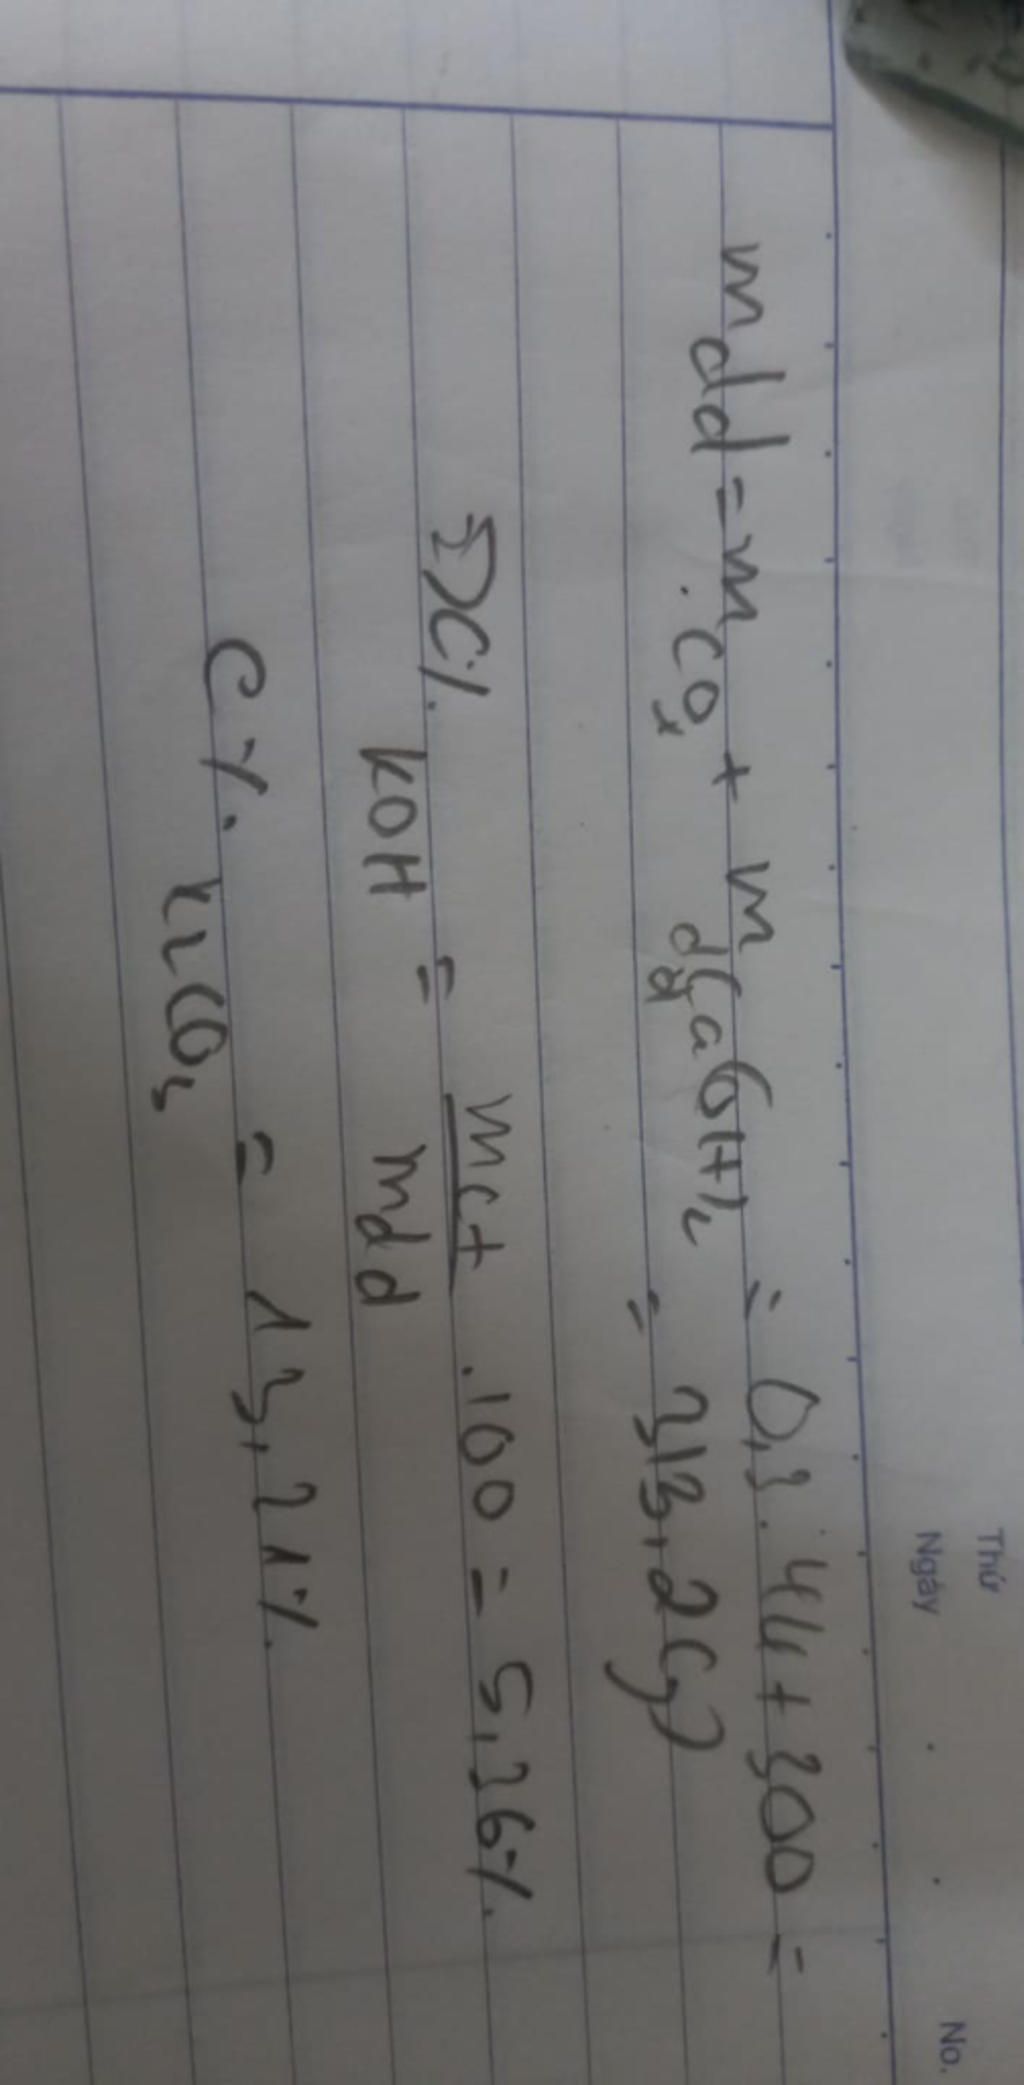 Thứ
Ngày No.
mdd = mCO2 + mddCa(OH)2 = 0,3.44 + 300 =
= 313,2(g)
=> C%KOH = mct/mdd .100 = 5,36%
C%K2CO3 = 13,21%